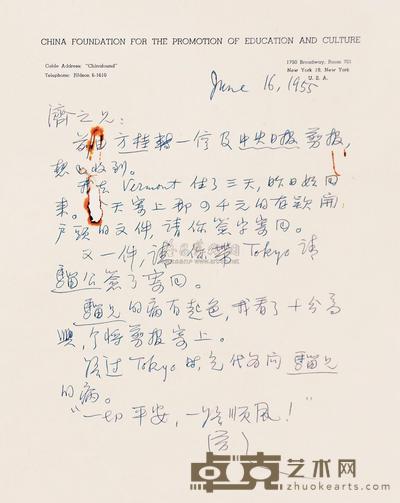 CHINA FOUNDATION FOR THE PROMOTION OF EDUCATION AND CULTURE
Cable Address: "Chinafound"
Telephone: JUdson 6-1610
1790 Broadway, Room 701
New York 19, New York
U. S. A.
June 16, 1955
濟之兄：
方桂轉一信及中央日報剪報，
想已收到。
我去 Vermont 住了三天，昨日始回
來。天寄上那四千元的存款開
戶頭的文件，請你簽字寄回。
又一件，請你帶 Tokyo 請
騮公簽了寄回。
騮兄的病有起色，我看了十分高
興，今將剪報寄上。
路过 Tokyo 时，乞代为问騮兄
的病。
"一切平安，一路順風！"
卓克艺术网
zhuokearts.com